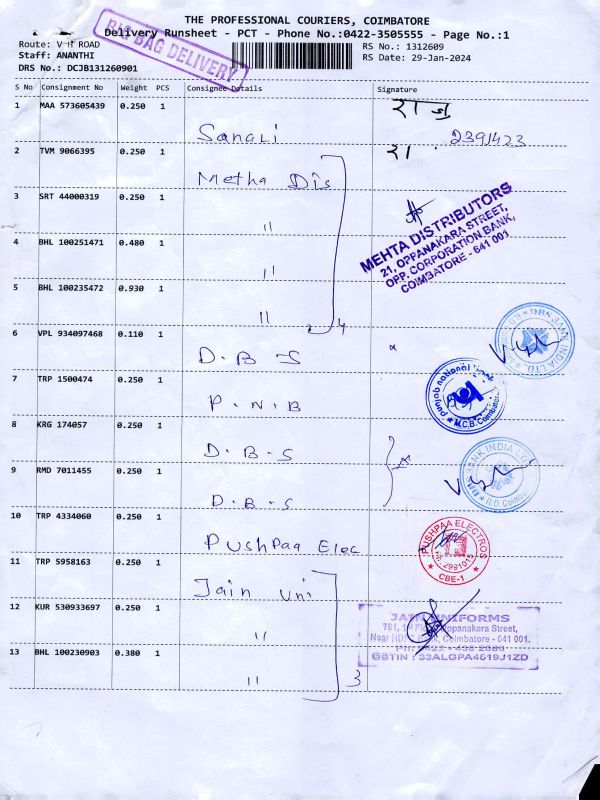 THE PROFESSIONAL COURIERS, COIMBATORE
Delivery Runsheet - PCT - Phone No.:0422-3505555 - Page No.:1
BIG BAG DELIVERY
Route: V H ROAD
Staff: ANANTHI
DRS No.: DCJB131260901
RS No.: 1312609
RS Date: 29-Jan-2024
S No Consignment No Weight PCS Consignee Details Signature
1 MAA 573605439 0.250 1 Sanali
2391423
2 TVM 9066395 0.250 1 Metha Dis
3 SRT 44000319 0.250 1 "
MEHTA DISTRIBUTORS
21, OPPANAKARA STREET,
OPP. CORPORATION BANK,
COIMBATORE - 641 001
4 BHL 100251471 0.480 1 "
5 BHL 100235472 0.930 1 " 4
6 VPL 934097468 0.110 1 D.B.S
DBS BANK INDIA LTD.
7 TRP 1500474 0.250 1 P.N.B
punjab national
M.C.B. Coimbatore
8 KRG 174057 0.250 1 D.B.S
9 RMD 7011455 0.250 1 D.B.S
BANK INDIA
R.O. Coimbatore
10 TRP 4334060 0.250 1 Pushpaa Elec
PUSHPAA ELECTROS
CBE-1
11 TRP 5958163 0.250 1 Jain Uni
12 KUR 530933697 0.250 1 "
JAIN UNIFORMS
Oppanakara Street,
Coimbatore - 641 001.
GSTIN : 33ALGPA4619J1ZD
13 BHL 100230903 0.380 1 " 3